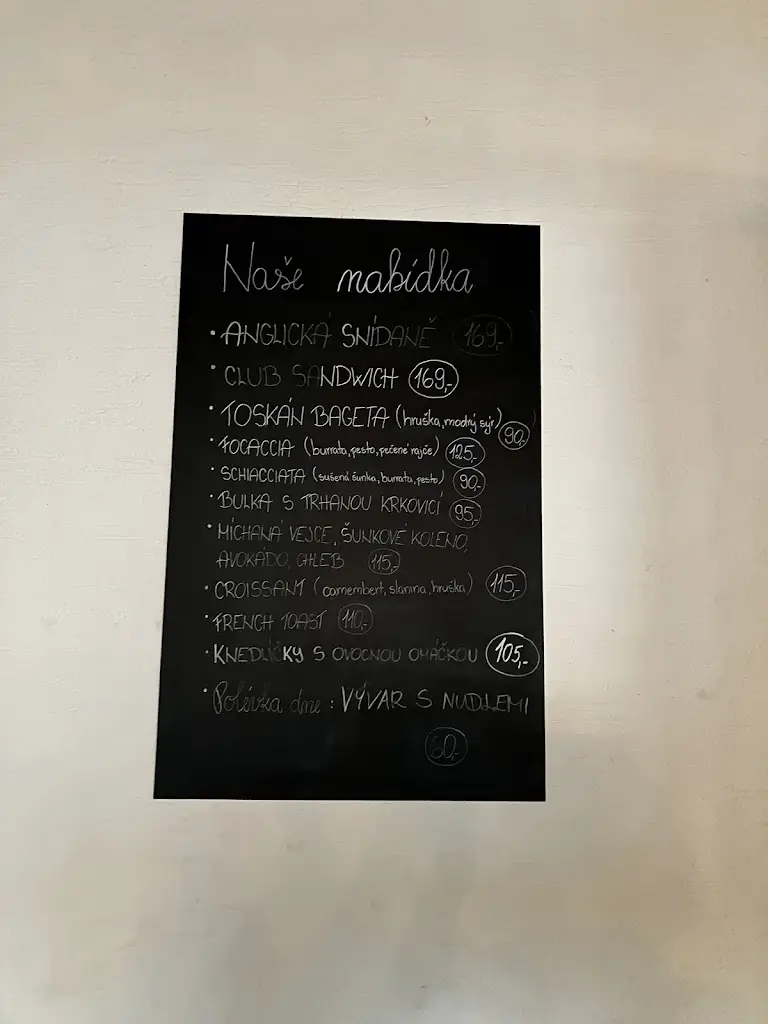 Naše nabídka
• ANGLICKÁ SNÍDANĚ 169,-
• CLUB SANDWICH 169,-
• TOSKÁN BAGETA (hruška, modrý sýr) 90,-
• FOCACCIA (burrata, pesto, pečené rajče) 125,-
• SCHIACCIATA (sušená šunka, burrata, pesto) 90,-
• BULKA S TRHANOU KRKOVICÍ 95,-
• MÍCHANÁ VEJCE, ŠUNKOVÉ KOLENO,
AVOKÁDO, CHLEB 115,-
• CROISSANT (camembert, slanina, hruška) 115,-
• FRENCH TOAST 110,-
• KNEDLÍČKY S OVOCNOU OMÁČKOU 105,-
• Polévka dne: VÝVAR S NUDLEMI
60,-